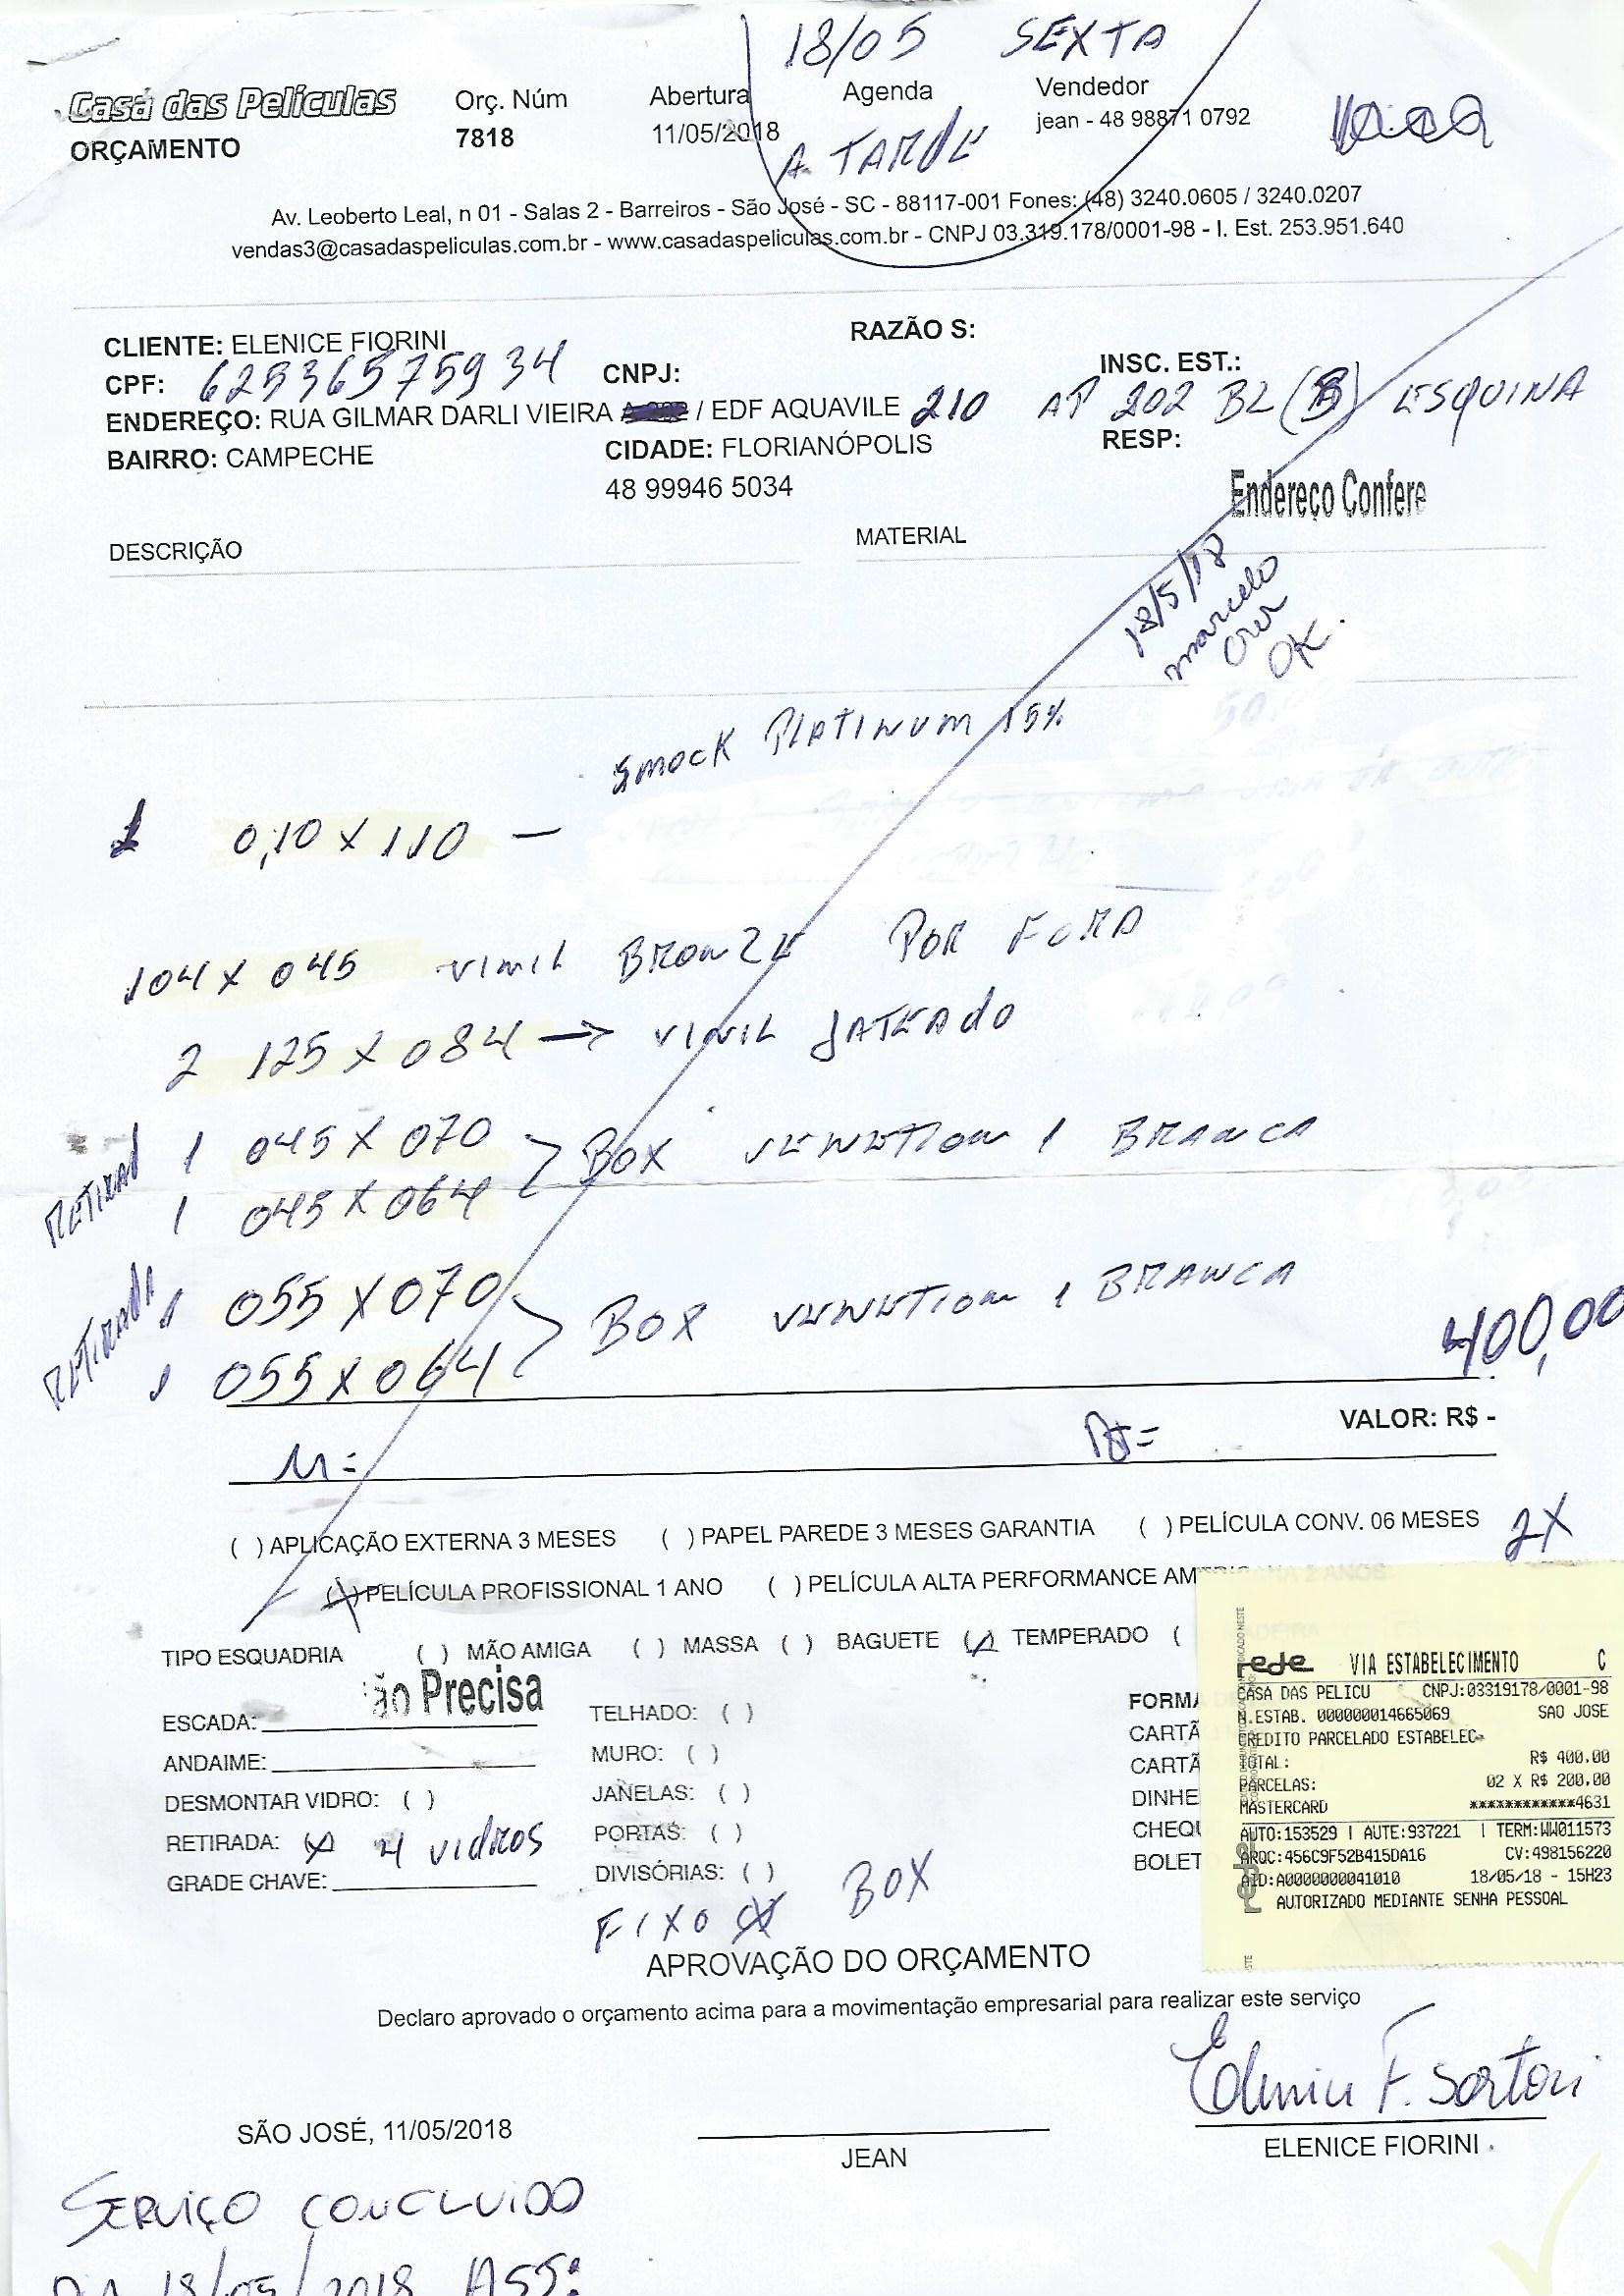 18/05 SEXTA
Casa das Películas
ORÇAMENTO
Orç. Núm
7818
Abertura
11/05/2018
Agenda
A TARDE
Vendedor
jean - 48 98871 0792
Av. Leoberto Leal, n 01 - Salas 2 - Barreiros - São José - SC - 88117-001 Fones: (48) 3240.0605 / 3240.0207
vendas3@casadaspeliculas.com.br - www.casadaspeliculas.com.br - CNPJ 03.319.178/0001-98 - I. Est. 253.951.640
CLIENTE: ELENICE FIORINI RAZÃO S:
CPF: 62536575934 CNPJ: INSC. EST.:
ENDEREÇO: RUA GILMAR DARLI VIEIRA / EDF AQUAVILE 210 AP 202 BL (B) ESQUINA
BAIRRO: CAMPECHE CIDADE: FLORIANÓPOLIS RESP:
48 99946 5034
Endereço Confere
DESCRIÇÃO MATERIAL
18/5/18
marcelo
OK.
SMOCK PLATINUM 15%
1 0,10 X 110 -
104 X 045 VINIL BRONZE POR FORA
2 125 X 084 → VINIL JATEADO
RETIRAD 1 045 X 070 BOX VENETION 1 BRANCA
1 045 X 064
RETIRADA 1 055 X 070 BOX VENETION 1 BRANCA
1 055 X 064
400,00
VALOR: R$ -
M= A=
( ) APLICAÇÃO EXTERNA 3 MESES ( ) PAPEL PAREDE 3 MESES GARANTIA ( ) PELÍCULA CONV. 06 MESES 2X
(X) PELÍCULA PROFISSIONAL 1 ANO ( ) PELÍCULA ALTA PERFORMANCE AMERICANA 2 ANOS
TIPO ESQUADRIA ( ) MÃO AMIGA ( ) MASSA ( ) BAGUETE (X) TEMPERADO (
ão Precisa
ESCADA:
ANDAIME:
DESMONTAR VIDRO: ( )
RETIRADA: (X) 4 vidros
GRADE CHAVE:
TELHADO: ( )
MURO: ( )
JANELAS: ( )
PORTAS: ( )
DIVISÓRIAS: ( )
FIXO (X) BOX
FORMA
CARTÃ
CARTÃ
DINHE
CHEQU
BOLET
rede VIA ESTABELECIMENTO C
CASA DAS PELICU CNPJ:03319178/0001-98
N.ESTAB. 000000014665069 SAO JOSE
CREDITO PARCELADO ESTABELEC
TOTAL: R$ 400.00
PARCELAS: 02 X R$ 200.00
MASTERCARD ************4631
AUTO:153529 | AUTE:937221 | TERM:WW011573
ARQC:456C9F52B415DA16 CV:498156220
AID:A0000000041010 18/05/18 - 15H23
AUTORIZADO MEDIANTE SENHA PESSOAL
rede
APROVAÇÃO DO ORÇAMENTO
Declaro aprovado o orçamento acima para a movimentação empresarial para realizar este serviço
F. Sartori
SÃO JOSÉ, 11/05/2018
JEAN
ELENICE FIORINI
SERVIÇO CONCLUIDO
18/05/2018 ASS: